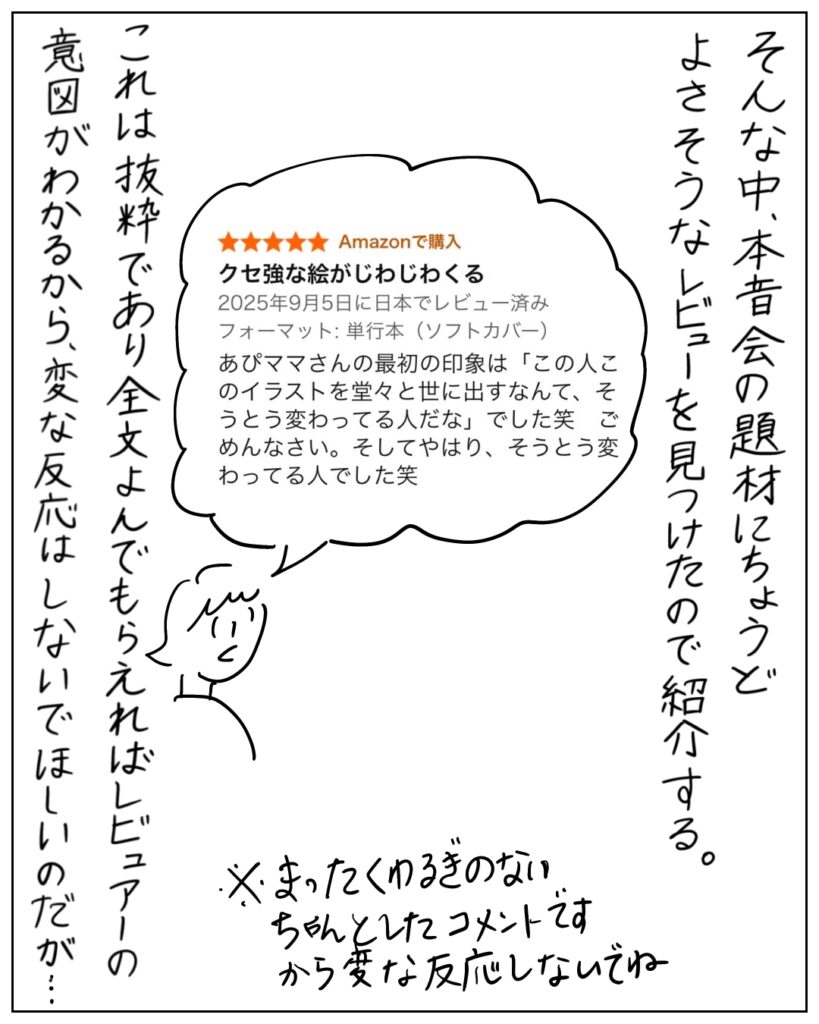 そんな中、本音会の題材にちょうど
よさそうなレビューを見つけたので紹介する。
★★★★★ Amazonで購入
クセ強な絵がじわじわくる
2025年9月5日に日本でレビュー済み
フォーマット: 単行本（ソフトカバー）
あぴママさんの最初の印象は「この人こ
のイラストを堂々と世に出すなんて、そ
うとう変わってる人だな」でした笑　ご
めんなさい。そしてやはり、そうとう変
わってる人でした笑
これは抜粋であり全文よんでもらえればレビュアーの
意図がわかるから、変な反応はしないでほしいのだが…
※まったくゆるぎのない
ちゃんとしたコメントです
から変な反応しないでね